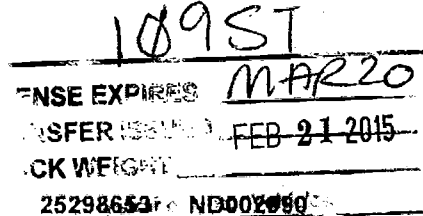 109ST
ENSE EXPIRES MAR20
SFER ISSUED FEB 21 2015
CK WEIGHT
25298653 ND002090